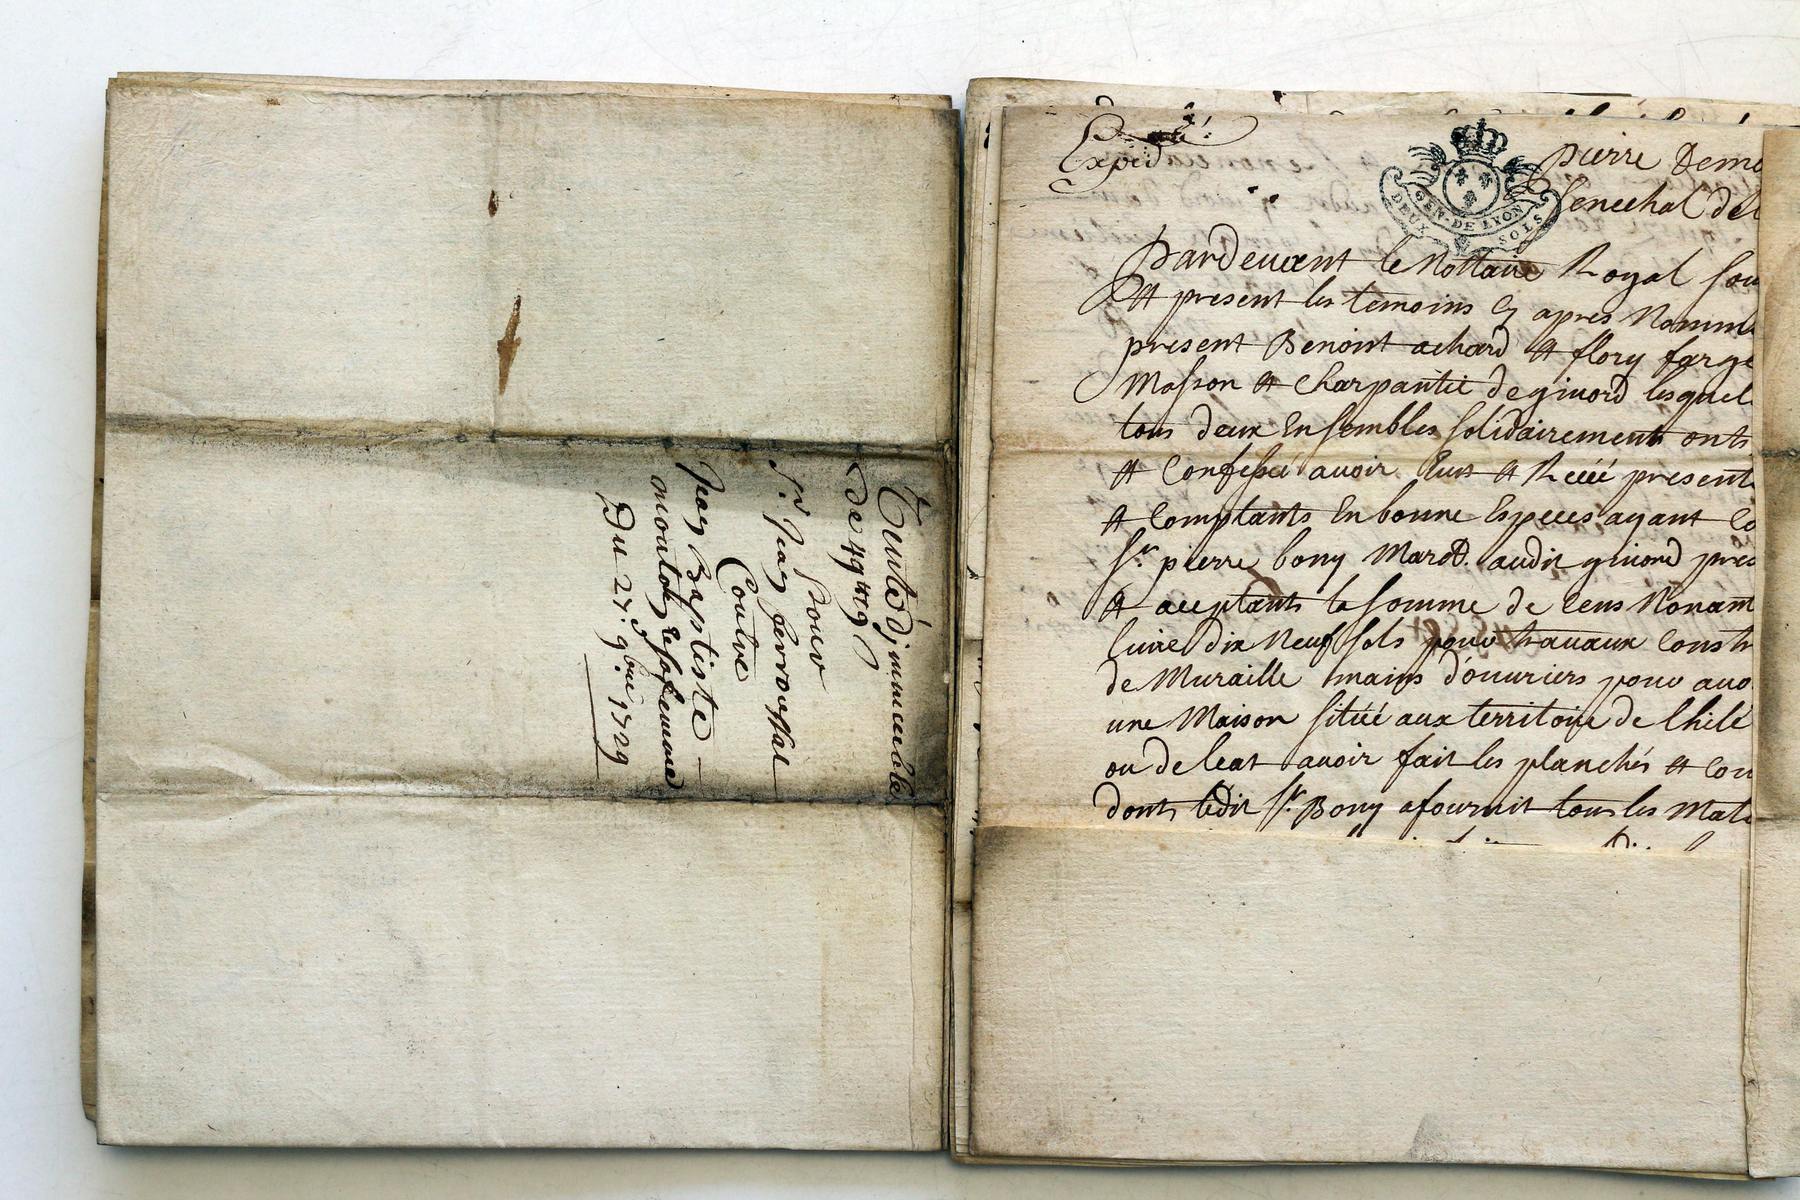 pour
Sr. Jean ferroussat
Contre
Jean Baptiste
et sa femme
Du 27. 9bre 1729
Expedié
GEN. DE LYON
DEUX SOLS
pierre Deme
Senechal de
Pardeuant le Nottaire Royal sou
et present les temoins cy apres Nomm
present Benoint achard et flory farge
Masson et Charpantié de giuord lesquel
tous deux Ensembles solidairement onts
et Confessé auoir Eut et Receü present
et Comptants En bonne Especes ayant Co
Sr. pierre bony Mard. audit giuord pres
et aceptants la somme de Cens Nonant
liure dix Neuf sols pour trauaux Const
de Muraille mains d'ouuriers pour auo
une Maison sitüé aux territoire de
ou de leat auoir fait les planchés et Cou
dont ledit Sr. Bony a fournit tous les Mate